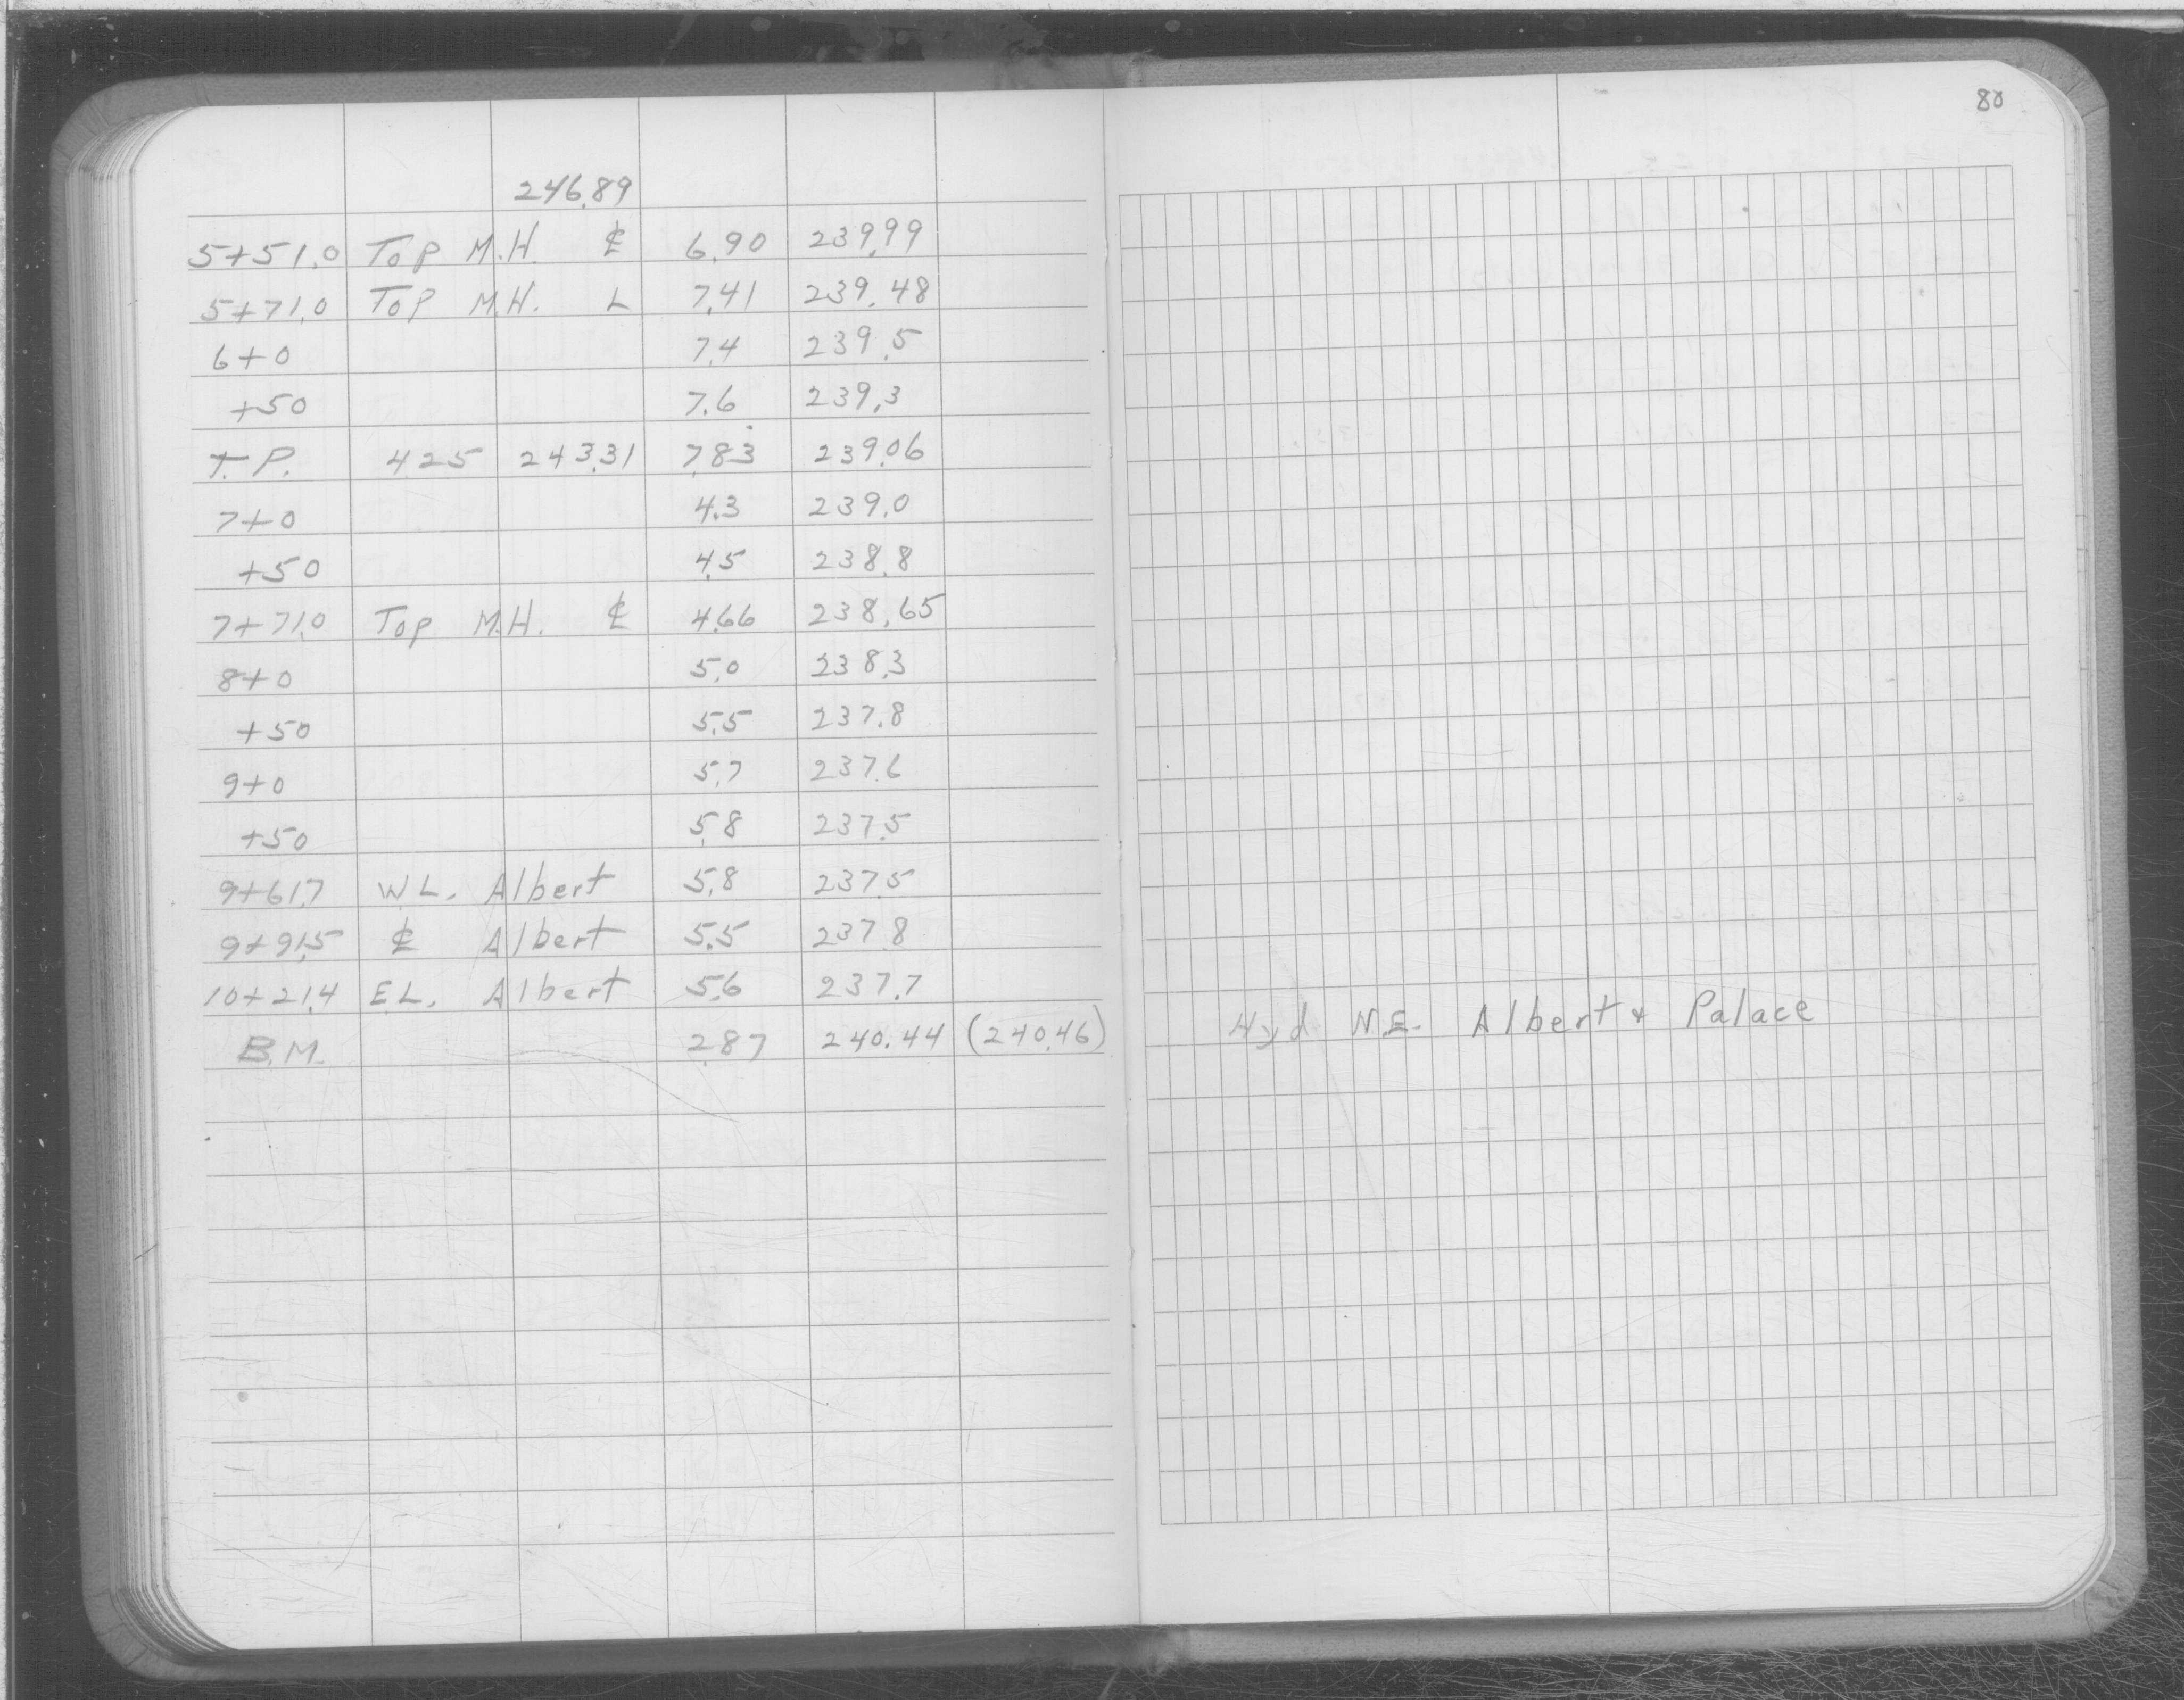 80
246.89
5+51.0 Top M.H. ℄ 6.90 239.99
5+71.0 Top M.H. L 7.41 239.48
6+0 7.4 239.5
+50 7.6 239.3
T.P. 4.25 243.31 7.83 239.06
7+0 4.3 239.0
+50 4.5 238.8
7+71.0 Top M.H. ℄ 4.66 238.65
8+0 5.0 238.3
+50 5.5 237.8
9+0 5.7 237.6
+50 5.8 237.5
9+61.7 W.L. Albert 5.8 237.5
9+91.5 ℄ Albert 5.5 237.8
10+21.4 E.L. Albert 5.6 237.7
B.M. 2.87 240.44 (240.46) Hyd N.E. Albert & Palace